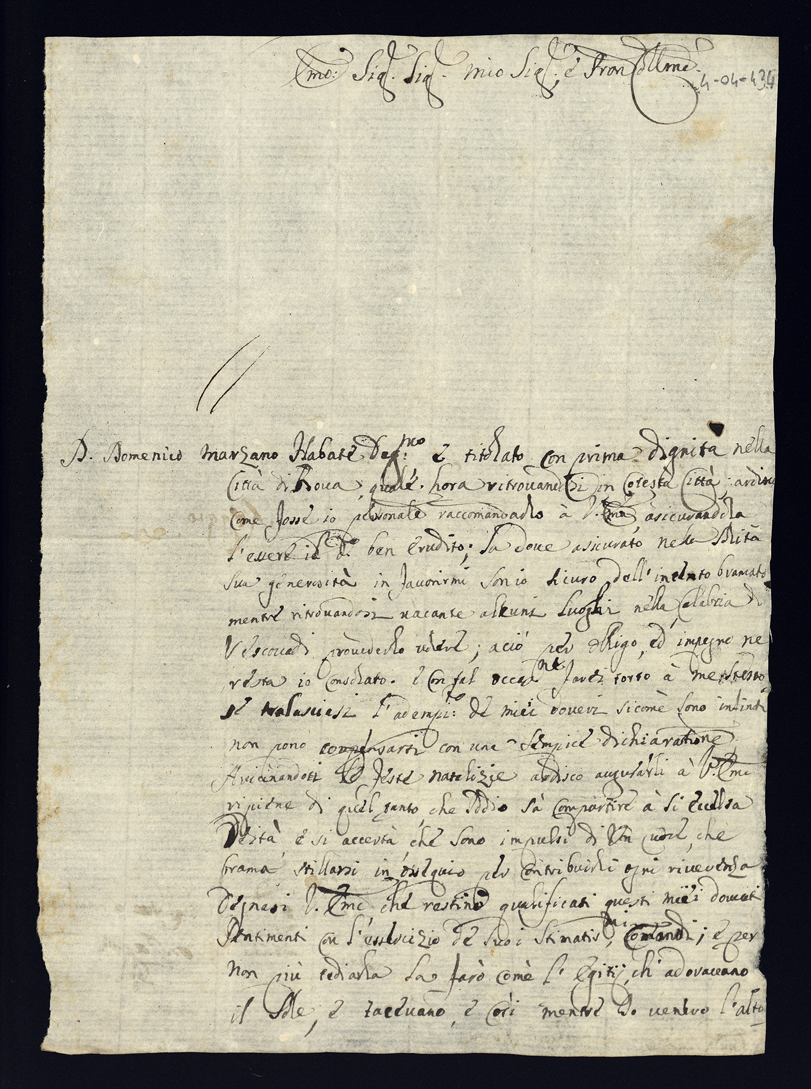 Emo: Sigr. Sigr. mio Sigr., e Pron
4-04-434
D. Domenico Marzano Habate Degmo: è titolato con prima dignita nella
Città di Bova, quale hora ritrovandosi in Cotestà Città ardisco
come fosse io personale raccomandarlo à V. Ema assicurandola
l'essere di ben erudito; la dove assicurato nella
sua generosità in favorirmi son io sicuro dell'intento bramato
mentre ritrovandosi vacante alcuni luoghi nella Calabria di
Vescovadi provederlo ; aciò per obligo, ed impegno ne
resta io Consolato. e Con tal occasne farei torto à me stesso
se tralasciasi l'adempito: de miei doveri sicome sono infiniti
non pono compensarsi con una semplice dichiaratione
Avicinandosi le feste natalizie ardisco augurarli à V. Ema
ripiene di quel santo che Iddio sà compartire à si eccelsa
Deità e si accertà che sono impulsi di Un cuore, che
brama stillarsi in ossequio per Contribuirli ogni riverenza
Degnasi V. Ema che restino qualificati questi miei dovuti
sentimenti con l'essercizio de suoi stimatismi Comandi; e per
non più tediarla la farò come l' Egitij, ch' adoravano
il Sole, e tacevano, e così mentre Io venero l'alto